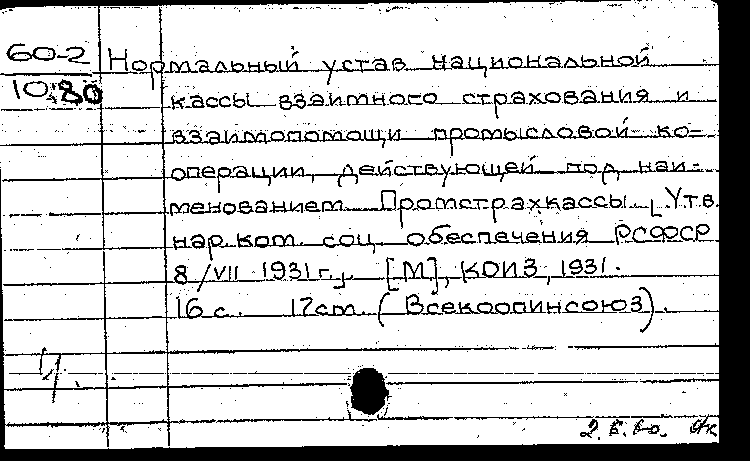 60-2
10.80
Нормальный устав национальной
кассы взаимного страхования и
взаимопомощи промысловой ко-
операции, действующей под наи-
менованием Промстрахкассы [Утв.
нар.ком. соц. обеспечения РСФСР
8/VII 1931 г.]. [М], КОИЗ, 1931.
16 с. 17см. (Всекоопинсоюз).